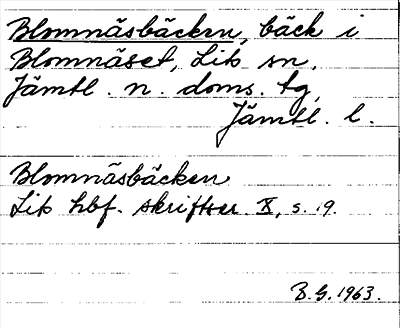 Blomnäsbäcken, bäck i
Blomnäset, Lits sn,
Jämtl. n. doms. tg,
Jämtl. l.
Blomnäsbäcken
Lits hbf. skrifter X, s. 19.
B.G. 1963.